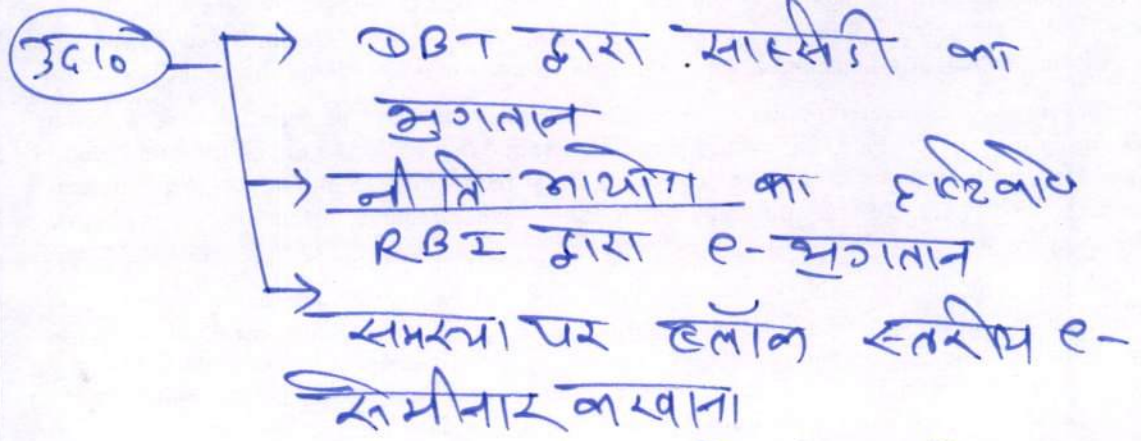 उदा० → DBT द्वारा सब्सिडी का
भुगतान
→ नीति आयोग का दृष्टिकोण
RBI द्वारा e-भुगतान
→ समस्या पर ब्लॉक स्तरीय e-
सेमीनार करवाना